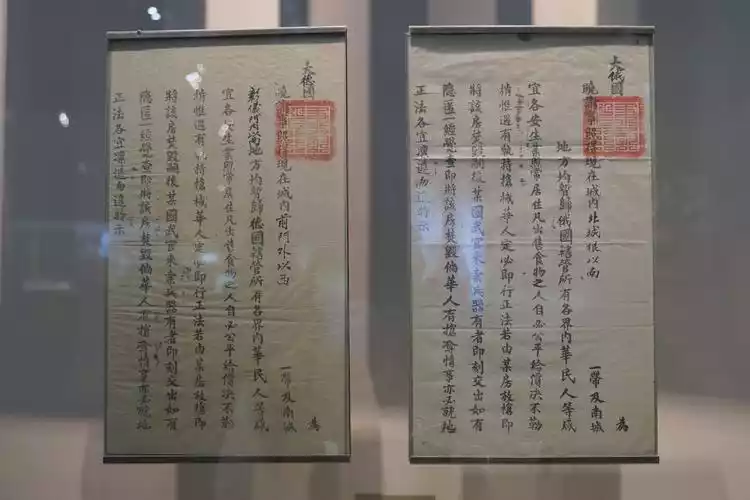 大德國 為
曉諭事照得現在城內前門外以西 一帶及南城
彰儀門以南地方均暫歸德國轄管所有各界內華民人等咸
宜各安生業照常居住凡出售食物之人自必公平給價決不勒
掯惟遇有執持搶械華人定必即行正法若由某房放搶即
將該房焚毀嗣後某國武官來索兵器有者即刻交出如有
隱匿一經覺查即將該房焚毀倘華人有搶奪情事亦必就地
正法各宜凜遵毋違特示
大俄國 為
曉諭事照得現在城內北城根以南 一帶及南城
地方均暫歸俄國轄管所有各界內華民人等咸
宜各安生業照常居住凡出售食物之人自必公平給價決不勒
掯惟遇有執持搶械華人定必即行正法若由某房放搶即
將該房焚毀嗣後某國武官來索兵器有者即刻交出如有
隱匿一經覺查即將該房焚毀倘華人有搶奪情事亦必就地
正法各宜凜遵毋違特示